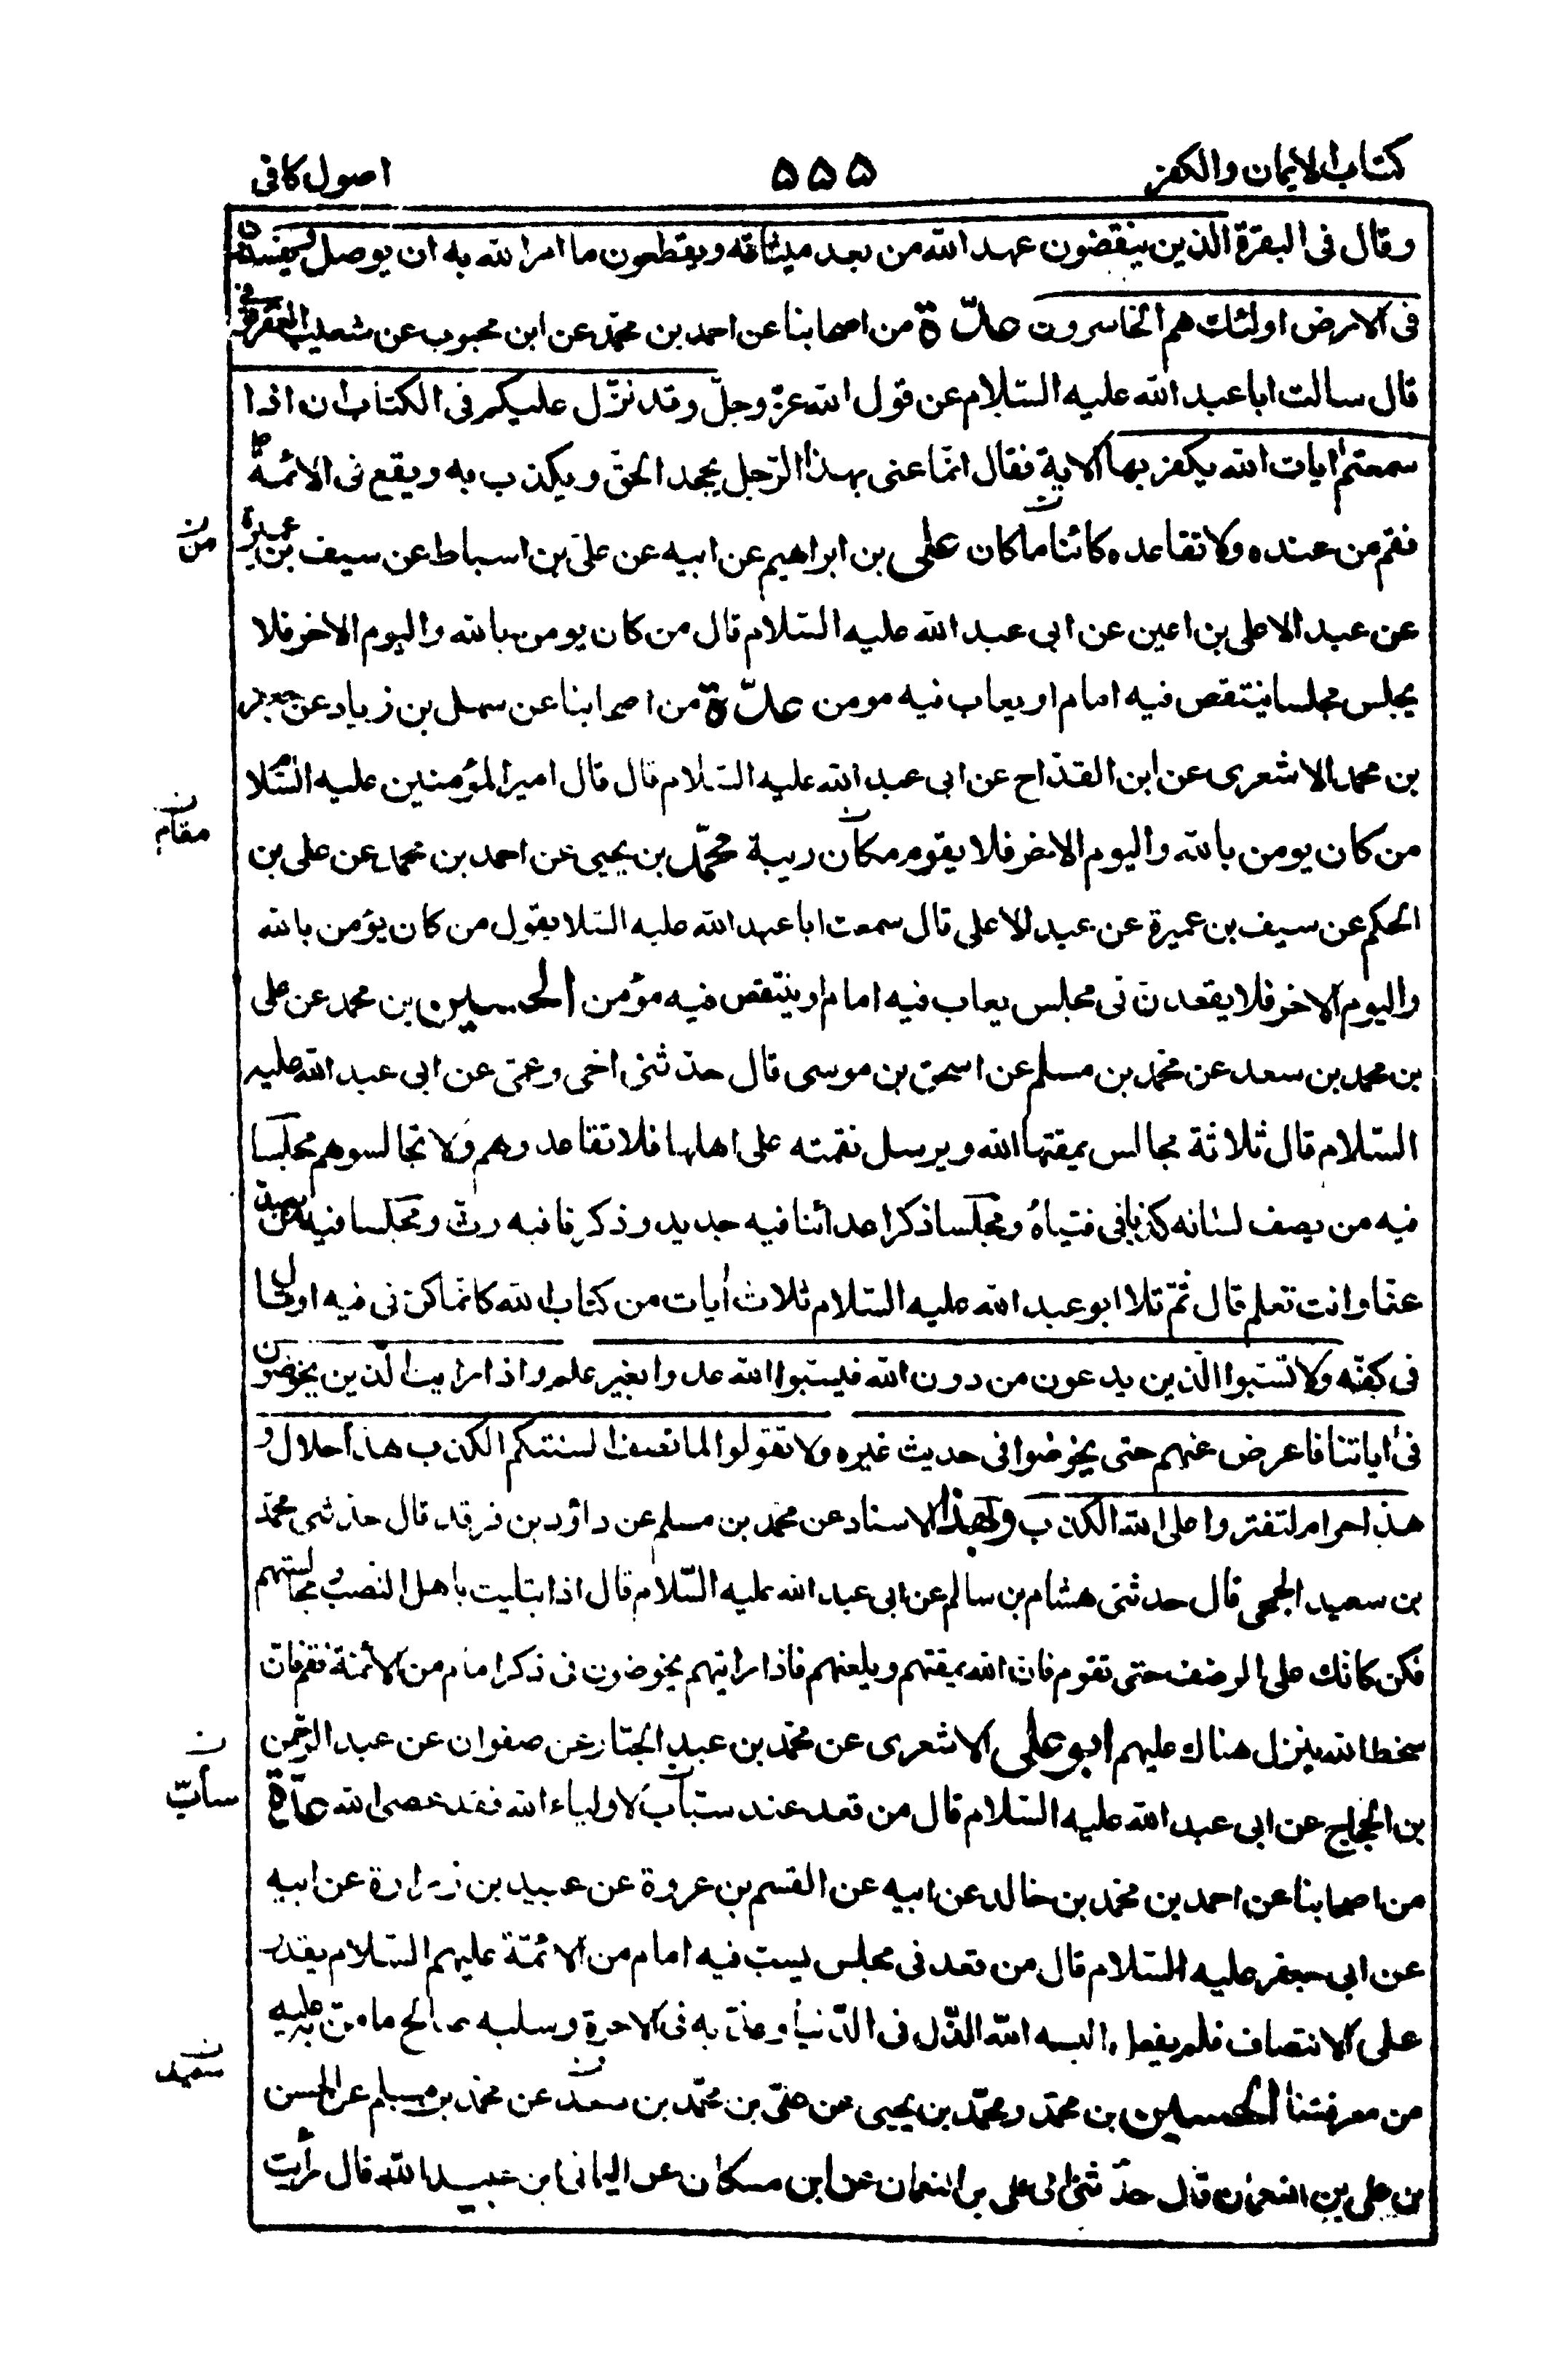 كتاب الايمان والكفر ۵۵۵ اصول كافى
وقال فى البقرة الذين ينقضون عهد الله من بعد ميثاقه ويقطعون ما امر الله به ان يوصل ويفسدون
فى الارض اولئك هم الخاسرون عدّة من اصحابنا عن احمد بن محمّد عن ابن محبوب عن شعيب العقرقوفى
قال سالت ابا عبد الله عليه السّلام عن قول الله عزّ وجلّ وقد نزّل عليكم فى الكتاب ان اذا
سمعتم ايات الله يكفر بها الاية فقال انّما عنى بهذا الرّجل يجحد الحقّ ويكذب به ويقع فى الائمّة
فقم من عنده ولا تقاعده كائنا ما كان على بن ابراهيم عن ابيه عن علىّ بن اسباط عن سيف بن عميرة
من
عن عبد الاعلى بن اعين عن ابى عبد الله عليه السّلام قال من كان يومن بالله واليوم الاخر فلا
يجلس مجلسا ينتقص فيه امام او يعاب فيه مومن عدّة من اصحابنا عن سهل بن زياد عن جعفر
بن محمد الاشعرى عن ابن القدّاح عن ابى عبد الله عليه السّلام قال قال امير المؤمنين عليه السّلام
من كان يومن بالله واليوم الاخر فلا يقوم مكان ريبة محمّد بن يحيى عن احمد بن محمد عن على بن
مقام
الحكم عن سيف بن عميرة عن عبد الاعلى قال سمعت ابا عبد الله عليه السّلا يقول من كان يؤمن بالله
واليوم الاخر فلا يقعدنّ فى مجلس يعاب فيه امام او ينتقص فيه مؤمن الحسين بن محمد عن على
بن محمد بن سعد عن محمّد بن مسلم عن اسحق بن موسى قال حدّثنى اخى وعمّى عن ابى عبد الله عليه
السّلام قال ثلاثة مجالس يمقتها الله ويرسل نقمته على اهلها فلا تقاعدوهم ولا تجالسوهم مجلسا
فيه من يصف لسانه كذبا فى فتياه ومجلسا ذكر اعدائنا فيه جديد وذكرنا فيه رثّ ومجلسا فيه من يصدّ
عنّا وانت تعلم قال ثمّ تلا ابو عبد الله عليه السّلام ثلاث أيات من كتاب الله كانّما كنّ فى فيه او قال
فى كفّه ولا تسبّوا الّذين يدعون من دون الله فيسبّوا الله عدوا بغير علم واذا رايت الّذين يخوضون
فى أياتنا فاعرض عنهم حتى يخوضوا فى حديث غيره ولا تقولوا لما تصف السنتكم الكذب هذا حلال و
هذا حرام لتفتروا على الله الكذب وبهذا الاسناد عن محمد بن مسلم عن داؤد بن فرقد قال حدّثنى محمّد
بن سعيد الجمحى قال حدثنى هشام بن سالم عن ابى عبد الله عليه السّلام قال اذا ابتليت باهل النصب ومجالستهم
فكن كانّك على الرضف حتى تقوم فانّ الله يمقتهم ويلعنهم فاذا رايتهم يخوضون فى ذكر امام من الائمّة فقم فانّ
سخط الله ينزل هناك عليهم ابو على الاشعرى عن محمّد بن عبد الجبّار عن صفوان عن عبد الرّحمن
بن الحجّاج عن ابى عبد الله عليه السّلام قال من قعد عند سبّاب لاولياء الله فقد عصى الله عدّة
سابّ
من اصحابنا عن احمد بن محمّد بن خالد عن ابيه عن القسم بن عروة عن عبيد بن زرارة عن ابيه
عن ابى جعفر عليه السّلام قال من قعد فى مجلس يسبّ فيه امام من الائمّة عليهم السّلام يقدر
على الانتصاف فلم يفعل البسه الله الذّلّ فى الدّنيا وعذّبه فى الاخرة وسلبه صالح ما منّ به عليه
من معرفتنا الحسين بن محمّد ومحمّد بن يحيى عن علىّ بن محمّد بن سعد عن محمّد بن مسلم عن الحسن
سعيد
بن على بن النعمان قال حدّثنى ابى على بن النعمان عن ابن مسكان عن اليمانى ابن عبيد الله قال رأيت